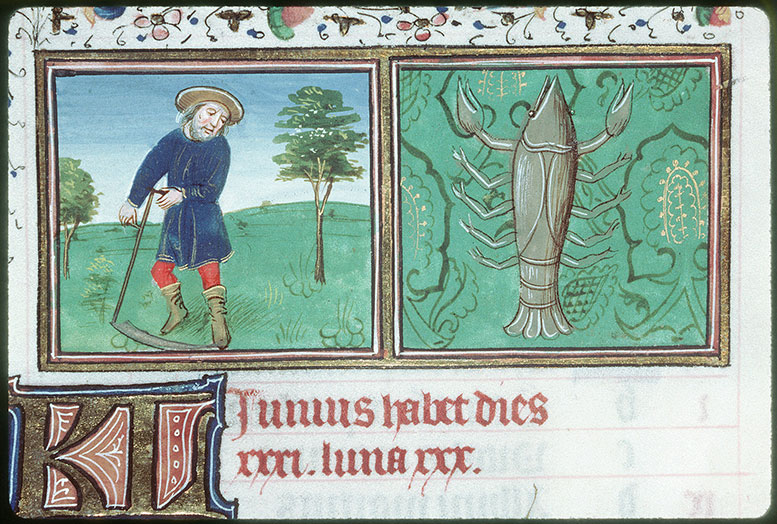 KL Iunius habet dies
xxxi. luna xxx.